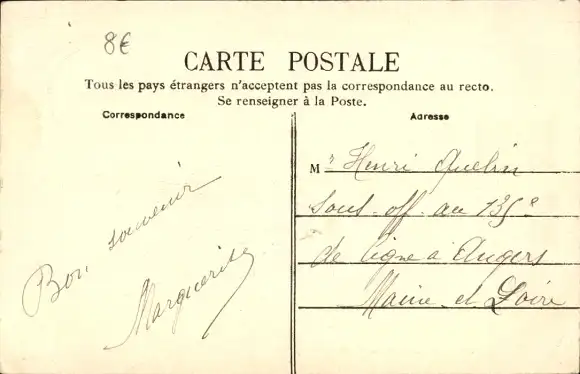 8€
CARTE POSTALE
Tous les pays étrangers n'acceptent pas la correspondance au recto.
Se renseigner à la Poste.
Correspondance
Adresse
Bon souvenir
Marguerite
Mr Henri Quelin
sous-off. au 135e
de ligne à Angers
Maine et Loire